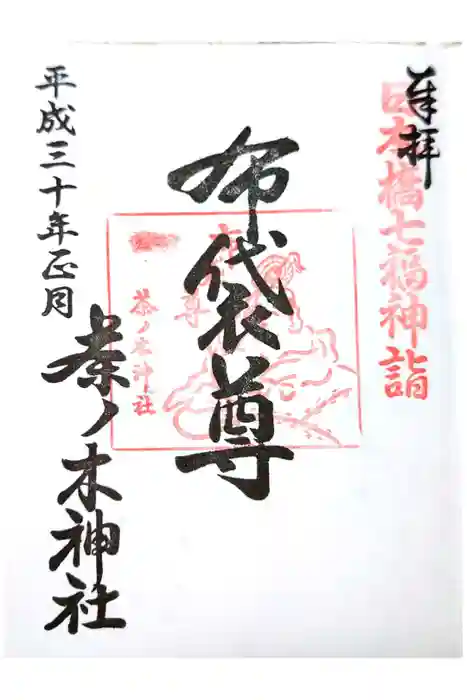 奉拝
日本橋七福神詣
布袋尊
布袋尊
茶ノ木神社
平成三十年正月
茶ノ木神社